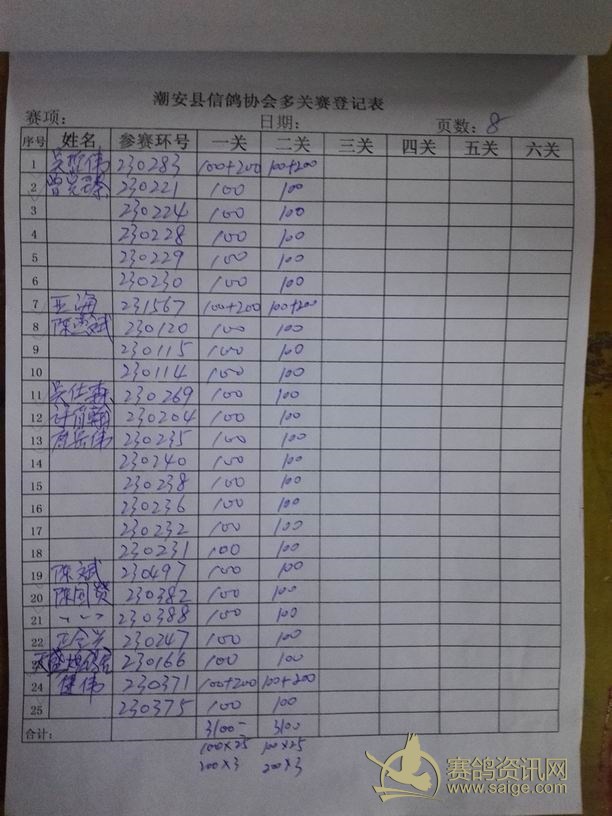 潮安县信鸽协会多关赛登记表
赛项: 日期: 页数: 8
序号 姓名 参赛环号 一关 二关 三关 四关 五关 六关
1 伟 230283 100+200 100+200
2 230221 100 100
3 230224 100 100
4 230228 100 100
5 230229 100 100
6 230230 100 100
7 亚海 231567 100+200 100+200
8 陈 斌 230120 100 100
9 230115 100 100
10 230114 100 100
11 吴仕森 230269 100 100
12 230204 100 100
13 伟 230235 100 100
14 230240 100 100
15 230238 100 100
16 230236 100 100
17 230232 100 100
18 230231 100 100
19 陈斌 230497 100 100
20 陈 230382 100 100
21 230388 100 100
22 230247 100 100
23 230166 100 100
24 健伟 230371 100+200 100+200
25 230375 100 100
合计: 3100- 3100
100×25 100×25
200×3 200×3
赛鸽资讯网
www.saige.com